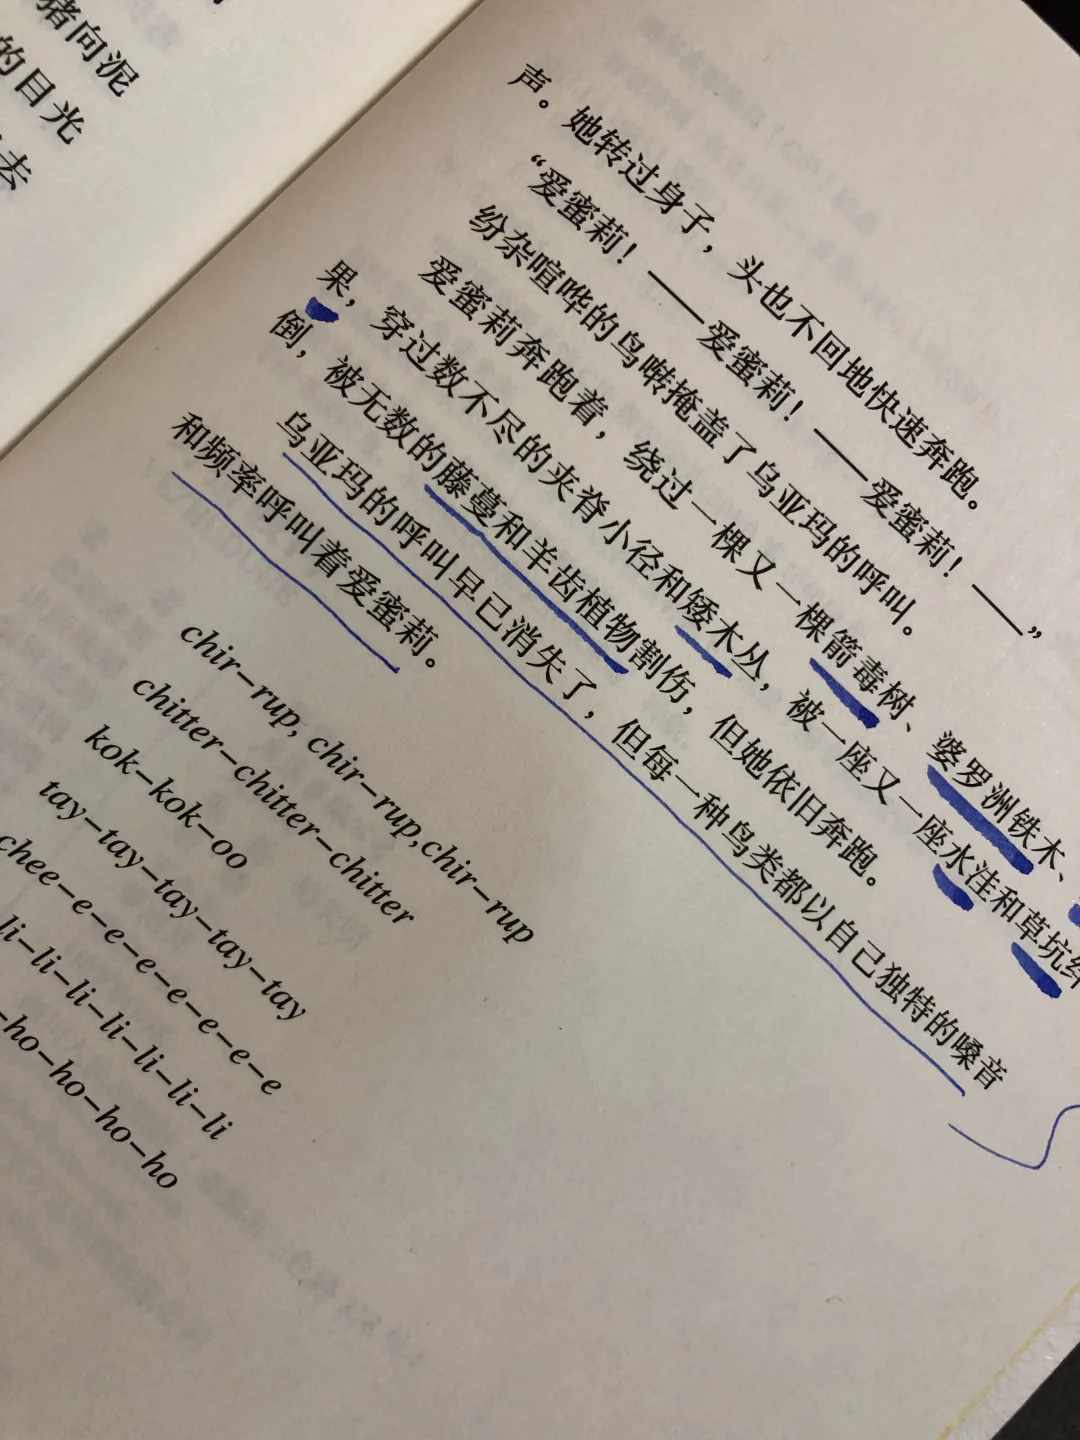 猪向泥
的目光
去
声。她转过身子，头也不回地快速奔跑。
“爱蜜莉！——爱蜜莉！——爱蜜莉！——”
纷杂喧哗的鸟啭掩盖了乌亚玛的呼叫。
爱蜜莉奔跑着，绕过一棵又一棵箭毒树、婆罗洲铁木、
果，穿过数不尽的夹脊小径和矮木丛，被一座又一座水洼和草坑绊
倒，被无数的藤蔓和羊齿植物割伤，但她依旧奔跑。
乌亚玛的呼叫早已消失了，但每一种鸟类都以自己独特的嗓音
和频率呼叫着爱蜜莉。
chir-rup, chir-rup,chir-rup
chitter-chitter-chitter
kok-kok-oo
tay-tay-tay-tay-tay-tay
chee-e-e-e-e-e-e-e
li-li-li-li-li-li-li
-ho-ho-ho-ho-ho